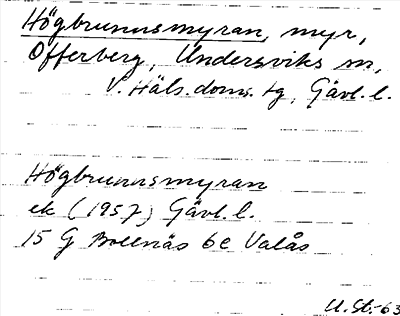 Högbrunnsmyran, myr,
Offerberg, Undersviks sn,
V. Häls. doms. tg, Gävl. l.
Högbrunnsmyran
ek (1957) Gävl. l.
15 G Bollnäs 6e Valås
U. St. -63